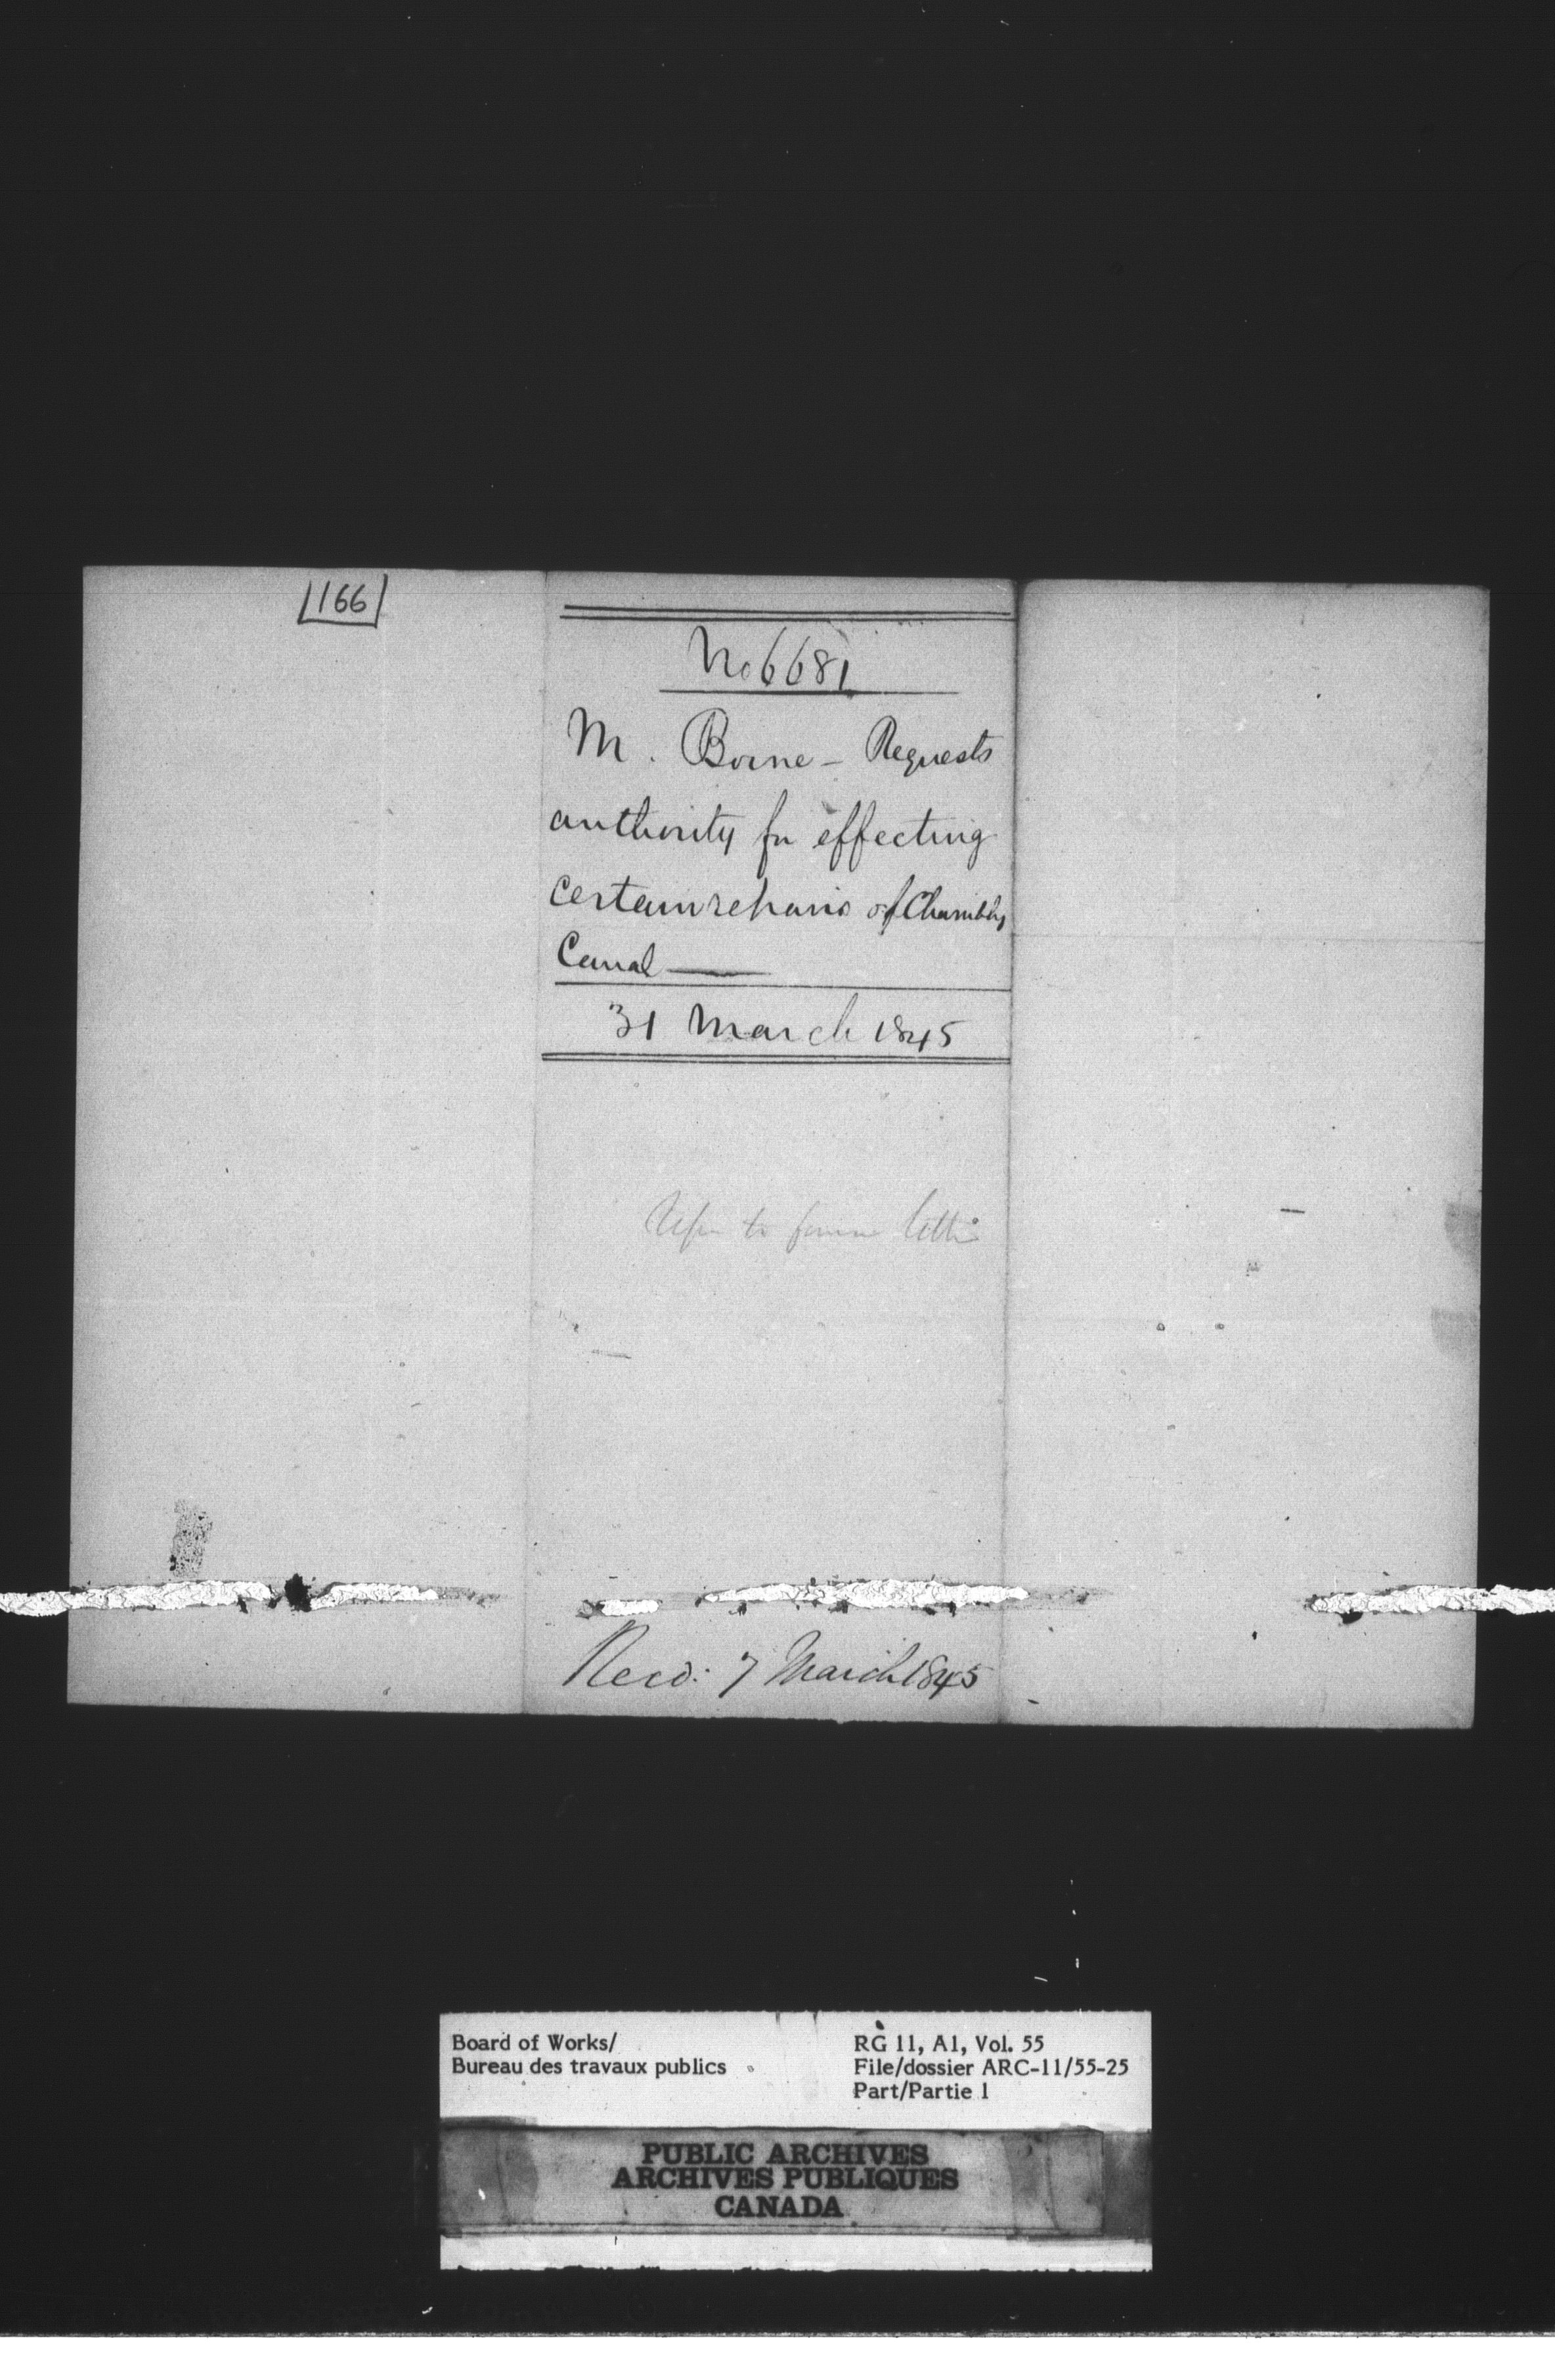 166
No 6681
M. Borne - Requests
authority for effecting
certain repairs of Chambly
Canal —
31 March 1845
to letter
Recd: 7 March 1845
Board of Works/
Bureau des travaux publics
RG 11, A1, Vol. 55
File/dossier ARC-11/55-25
Part/Partie 1
PUBLIC ARCHIVES
ARCHIVES PUBLIQUES
CANADA